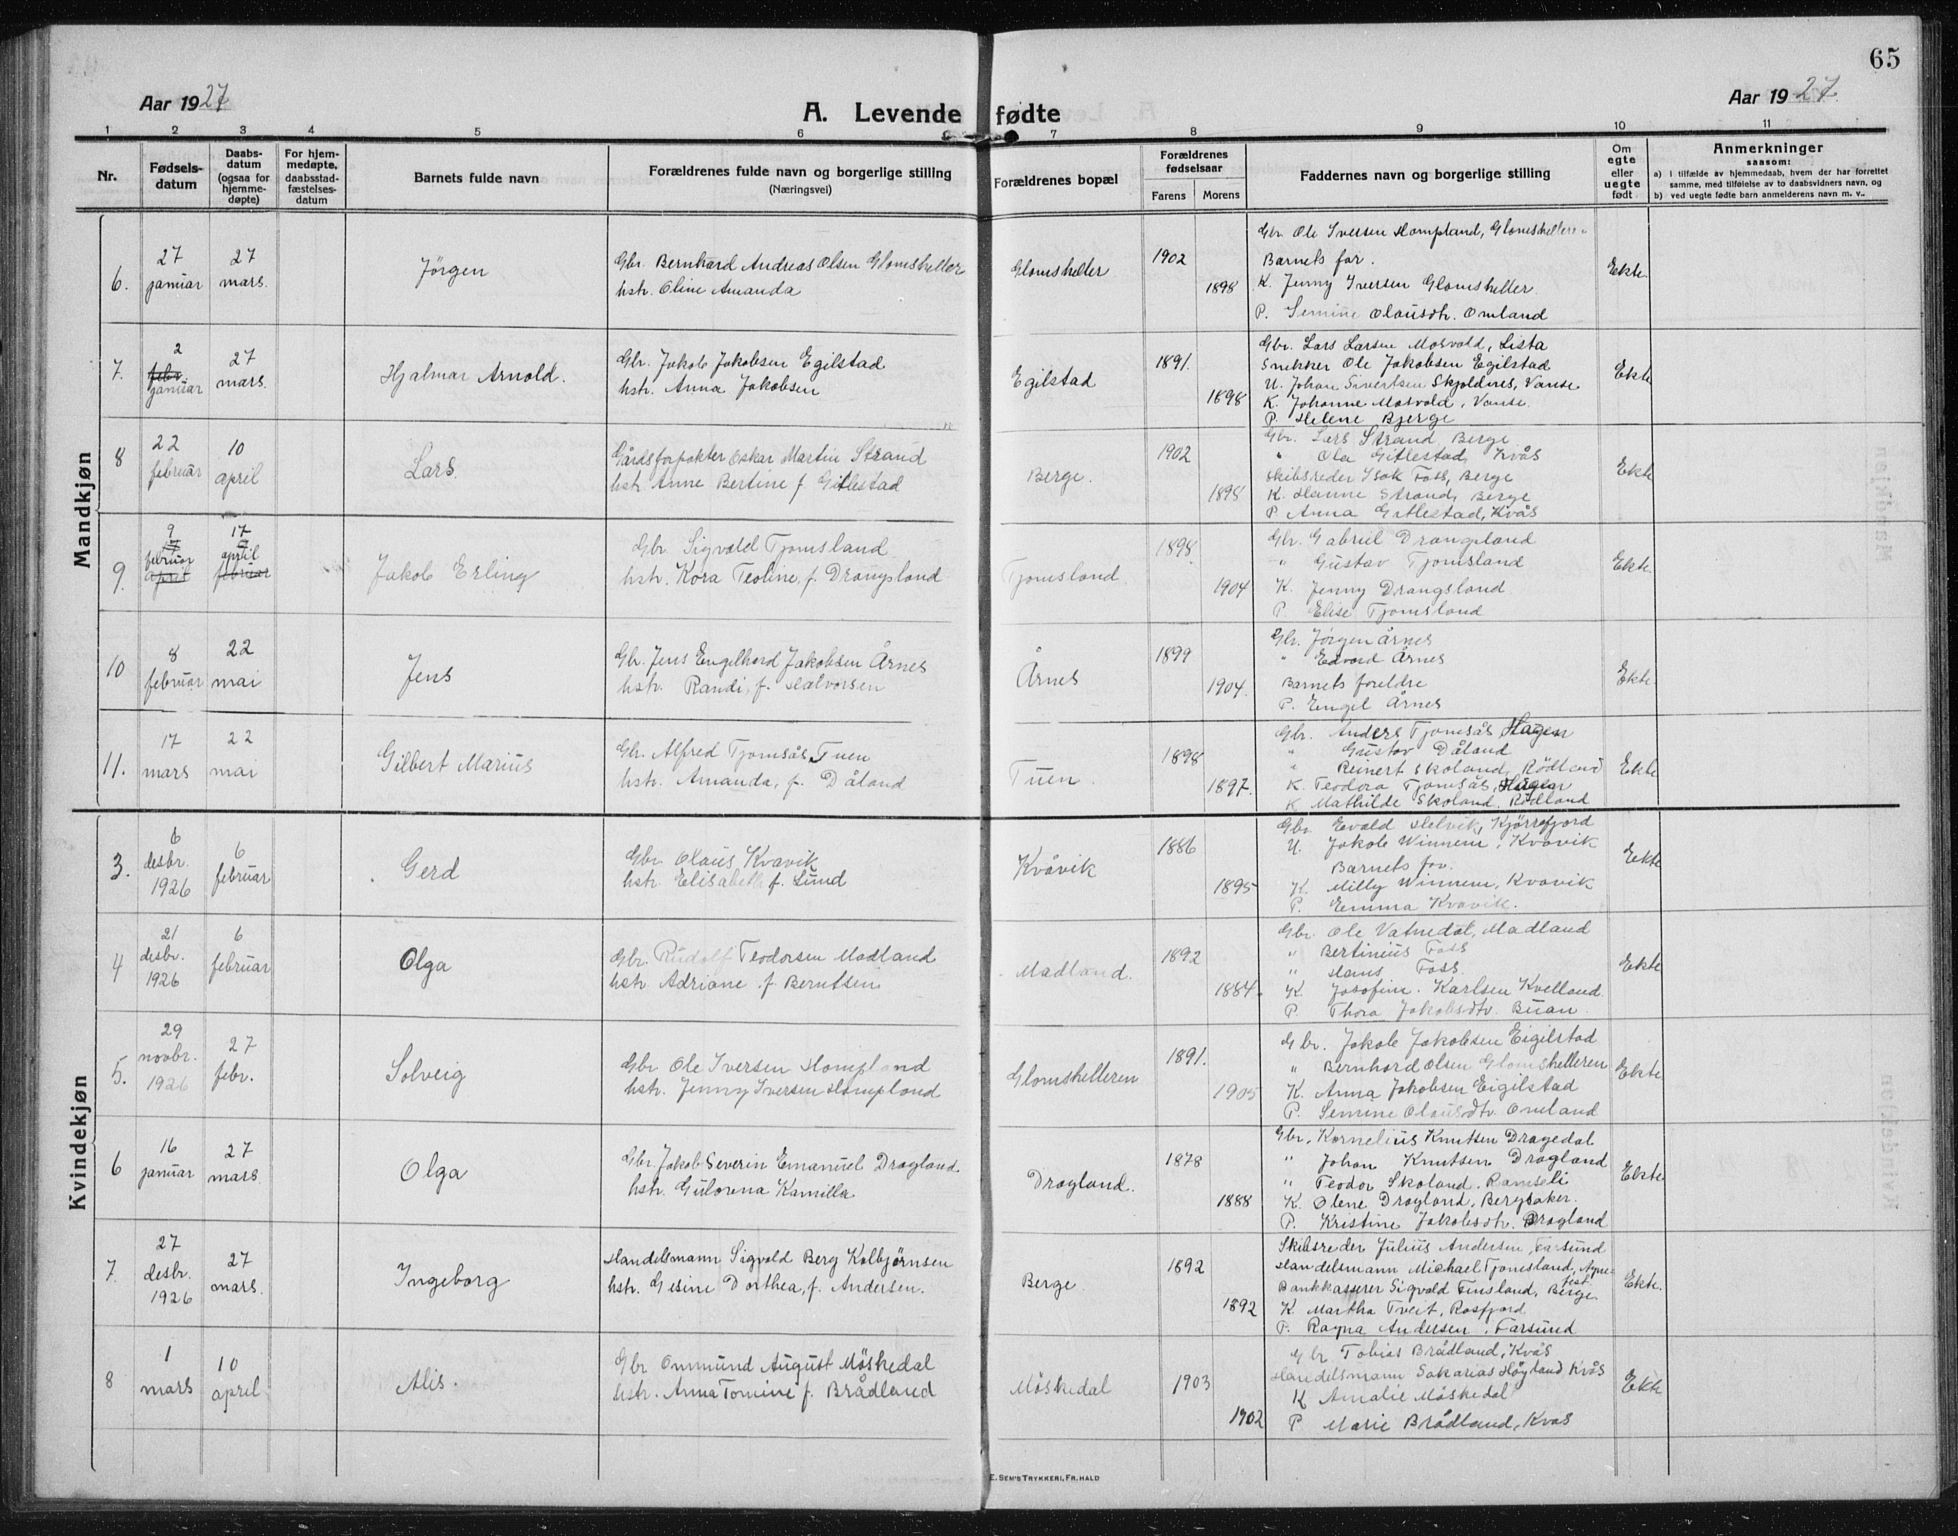 65
Aar 1927
A. Levende fødte
Aar 1927.
1 2 3 4 5 6 7 8 9 10 11
Nr.
Fødsels-
datum
Daabs-
datum
(ogsaa for
hjemme-
døpte)
For hjem-
medøpte,
daabsstad-
fæstelses-
datum
Barnets fulde navn
Forældrenes fulde navn og borgerlige stilling
(Næringsvei)
Forældrenes bopæl
Forældrenes
fødselsaar
Farens Morens
Faddernes navn og borgerlige stilling
Om
egte
eller
uegte
født
Anmerkninger
saasom:
a) I tilfælde av hjemmedaab, hvem der har forrettet
samme, med tilføielse av to daabsvidners navn, og
b) ved uegte fødte barn anmelderens navn m. v..
Mandkjøn
6.
27
januar
27
mars.
Jörgen
Gbr. Bernhard Andreas Olsen Glomsheller
hstr. Oline Amanda
Glomsheller
1902
1898
Gbr. Ole Iversen Hompland, Glomshelleren
Barnets far.
K. Jenny Iversen Glomsheller.
P. Semine Olausdtr. Omland
Ekte
7.
2
febr.
januar
27
mars.
Hjalmar Arnold.
Gbr. Jakob Jakobsen Egilstad
hstr. Anna Jakobsen
Egilstad
1891.
1898
Gbr. Lars Larsen Mosvold, Lista
Snekker Ole Jakobsen Egilstad
U. Johan Sivertsen Skjoldnes, Vanse
K. Johanne Mosvold, Vanse.
P. Helene Bjerge
Ekte
8
22
februar
10
april
Lars.
Gårdsforpakter Oskar Martin Strand
hstr. Anne Bertine f. Gitlestad
Berge.
1902
1898
Gbr. Lars Strand Berge
" Ola Gitlestad, Kvås
Skibsreder Isak Foss, Berge
K. Hanne Strand, Berge
P. Anna Gitlestad, Kvås
Ekte
9.
9
februar
april
17
april
februar
Jakob Erling
Gbr. Sigvald Tjomsland
hstr. Kora Teoline, f. Drangsland
Tjomsland.
1898
1904
Gbr. Gabriel Drangsland
" Gustav Tjomsland
K. Jenny Drangsland
P. Elise Tjomsland
Ekte.
10
8
februar
22
mai
Jens
Gbr. Jens Engelhard Jakobsen Årnes
hstr. Randi, f. Halvorsen
Årnes
1899
1904.
Gbr. Jörgen Årnes
" Edvard Årnes
Barnets foreldre
P. Engel Årnes
Ekte.
11.
17
mars
22
mai
Gilbert Marius
Gbr. Alfred Tjomsås, Tuen
hstr. Amanda, f. Dåland
Tuen.
1898
1897.
Gbr. Anders Tjomsås Hagen
" Gustav Dåland
" Reinert Skoland, Rödland
K. Teodora Tjomsås, Hagen
K. Mathilde Skoland, Rödland
Ekte
Kvindekjøn
3.
6
desbr.
1926
6
februar
Gerd
Gbr. Olaus Kvavik
hstr. Elisabeth f. Lund
Kvåvik
1886
1895
Gbr. Evald Helvik, Kjörrefjord
U. Jakob Winnem, Kvavik
Barnets far.
K. Milly Winnem, Kvavik
P. Emma Kvavik.
Ekte
4
21
desbr.
1926
6
februar
Olga
Gbr. Rudolf Teodorsen Madland
hstr. Adriane f. Berntsen
Madland.
1892
1884.
Gbr. Ole Vatnedal, Madland
" Bertinius Foss
" Hans Foss.
K. Josofine Karlsen Kvelland.
P. Thora Jakobsdtr. Buan.
Ekte
5.
29
novbr.
1926
27
febr.
Solveig
Gbr. Ole Iversen Hompland
hstr. Jenny Iversen Hompland
Glomshelleren
1891.
1905
Gbr. Jakob Jakobsen Eigilstad
" Bernhard Olsen Glomshelleren
K. Anna Jakobsen Eigilstad
P. Semine Olausdtr. Omland
Ekte
6
16
januar
27
mars.
Olga
Gbr. Jakob Severin Emanuel Dragland.
hstr. Gulovna Kamilla
Dragland.
1878
1888
Gbr. Kornelius Knutsen Dragedal
" Johan Knutsen Dragland
" Teodor Skoland, Ramseli
K. Olene Dragland, Bergsaker.
P. Kristine Jakobsdtr. Dragland
Ekte
7.
27
desbr.
1926
27
mars.
Ingeborg
Handelsmann Sigvald Berg Kolbjørnsen
hstr. Gesine Dorthea, f. Andersen.
Berge
1892
1892
Skibsreder Julius Andersen, Farsund
Handelsmann Michael Tjomsland, Agne-
fest
Bankkasserer Sigvald Finsland, Berge
K. Martha Tveit, Rosfjord
P. Ragna Andersen, Farsund
Ekte.
8
1
mars
10
april
Alis.
Gbr Ommund August Möskedal
hstr. Anna Tomine f. Brådland
Möskedal
1903
1902
Gbr Tobias Brådland, Kvås
Handelsmann Sakarias Högland Kvås
K Amalie Möskedal
P Marie Brådland, Kvås
Ekte
E. SEM'S TRYKKERI, FR.HALD